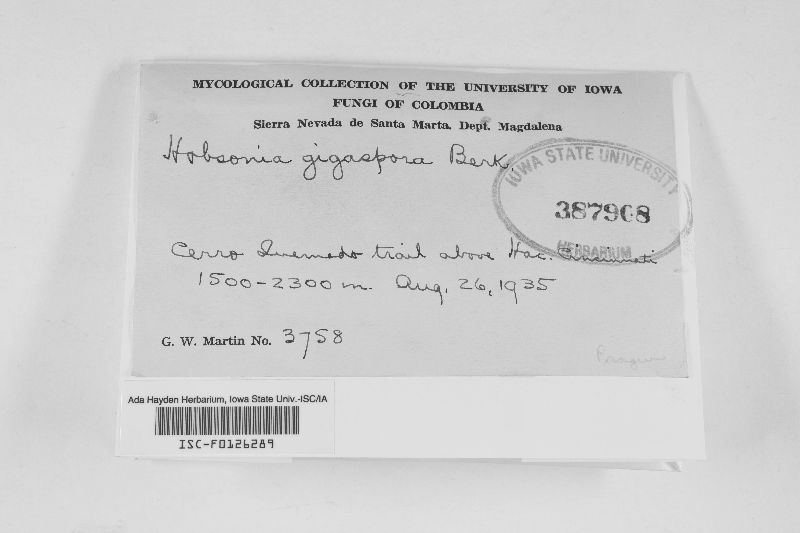 MYCOLOGICAL COLLECTION OF THE UNIVERSITY OF IOWA
FUNGI OF COLOMBIA
Sierra Nevada de Santa Marta, Dept. Magdalena
Hobsonia gigaspora Berk.
IOWA STATE UNIVERSITY
387908
HERBARIUM
Cerro Quemado trail above Hac. Cincinnati
1500-2300 m. Aug. 26, 1935
G. W. Martin No. 3758
Ada Hayden Herbarium, Iowa State Univ.-ISC/IA
ISC-F0126289